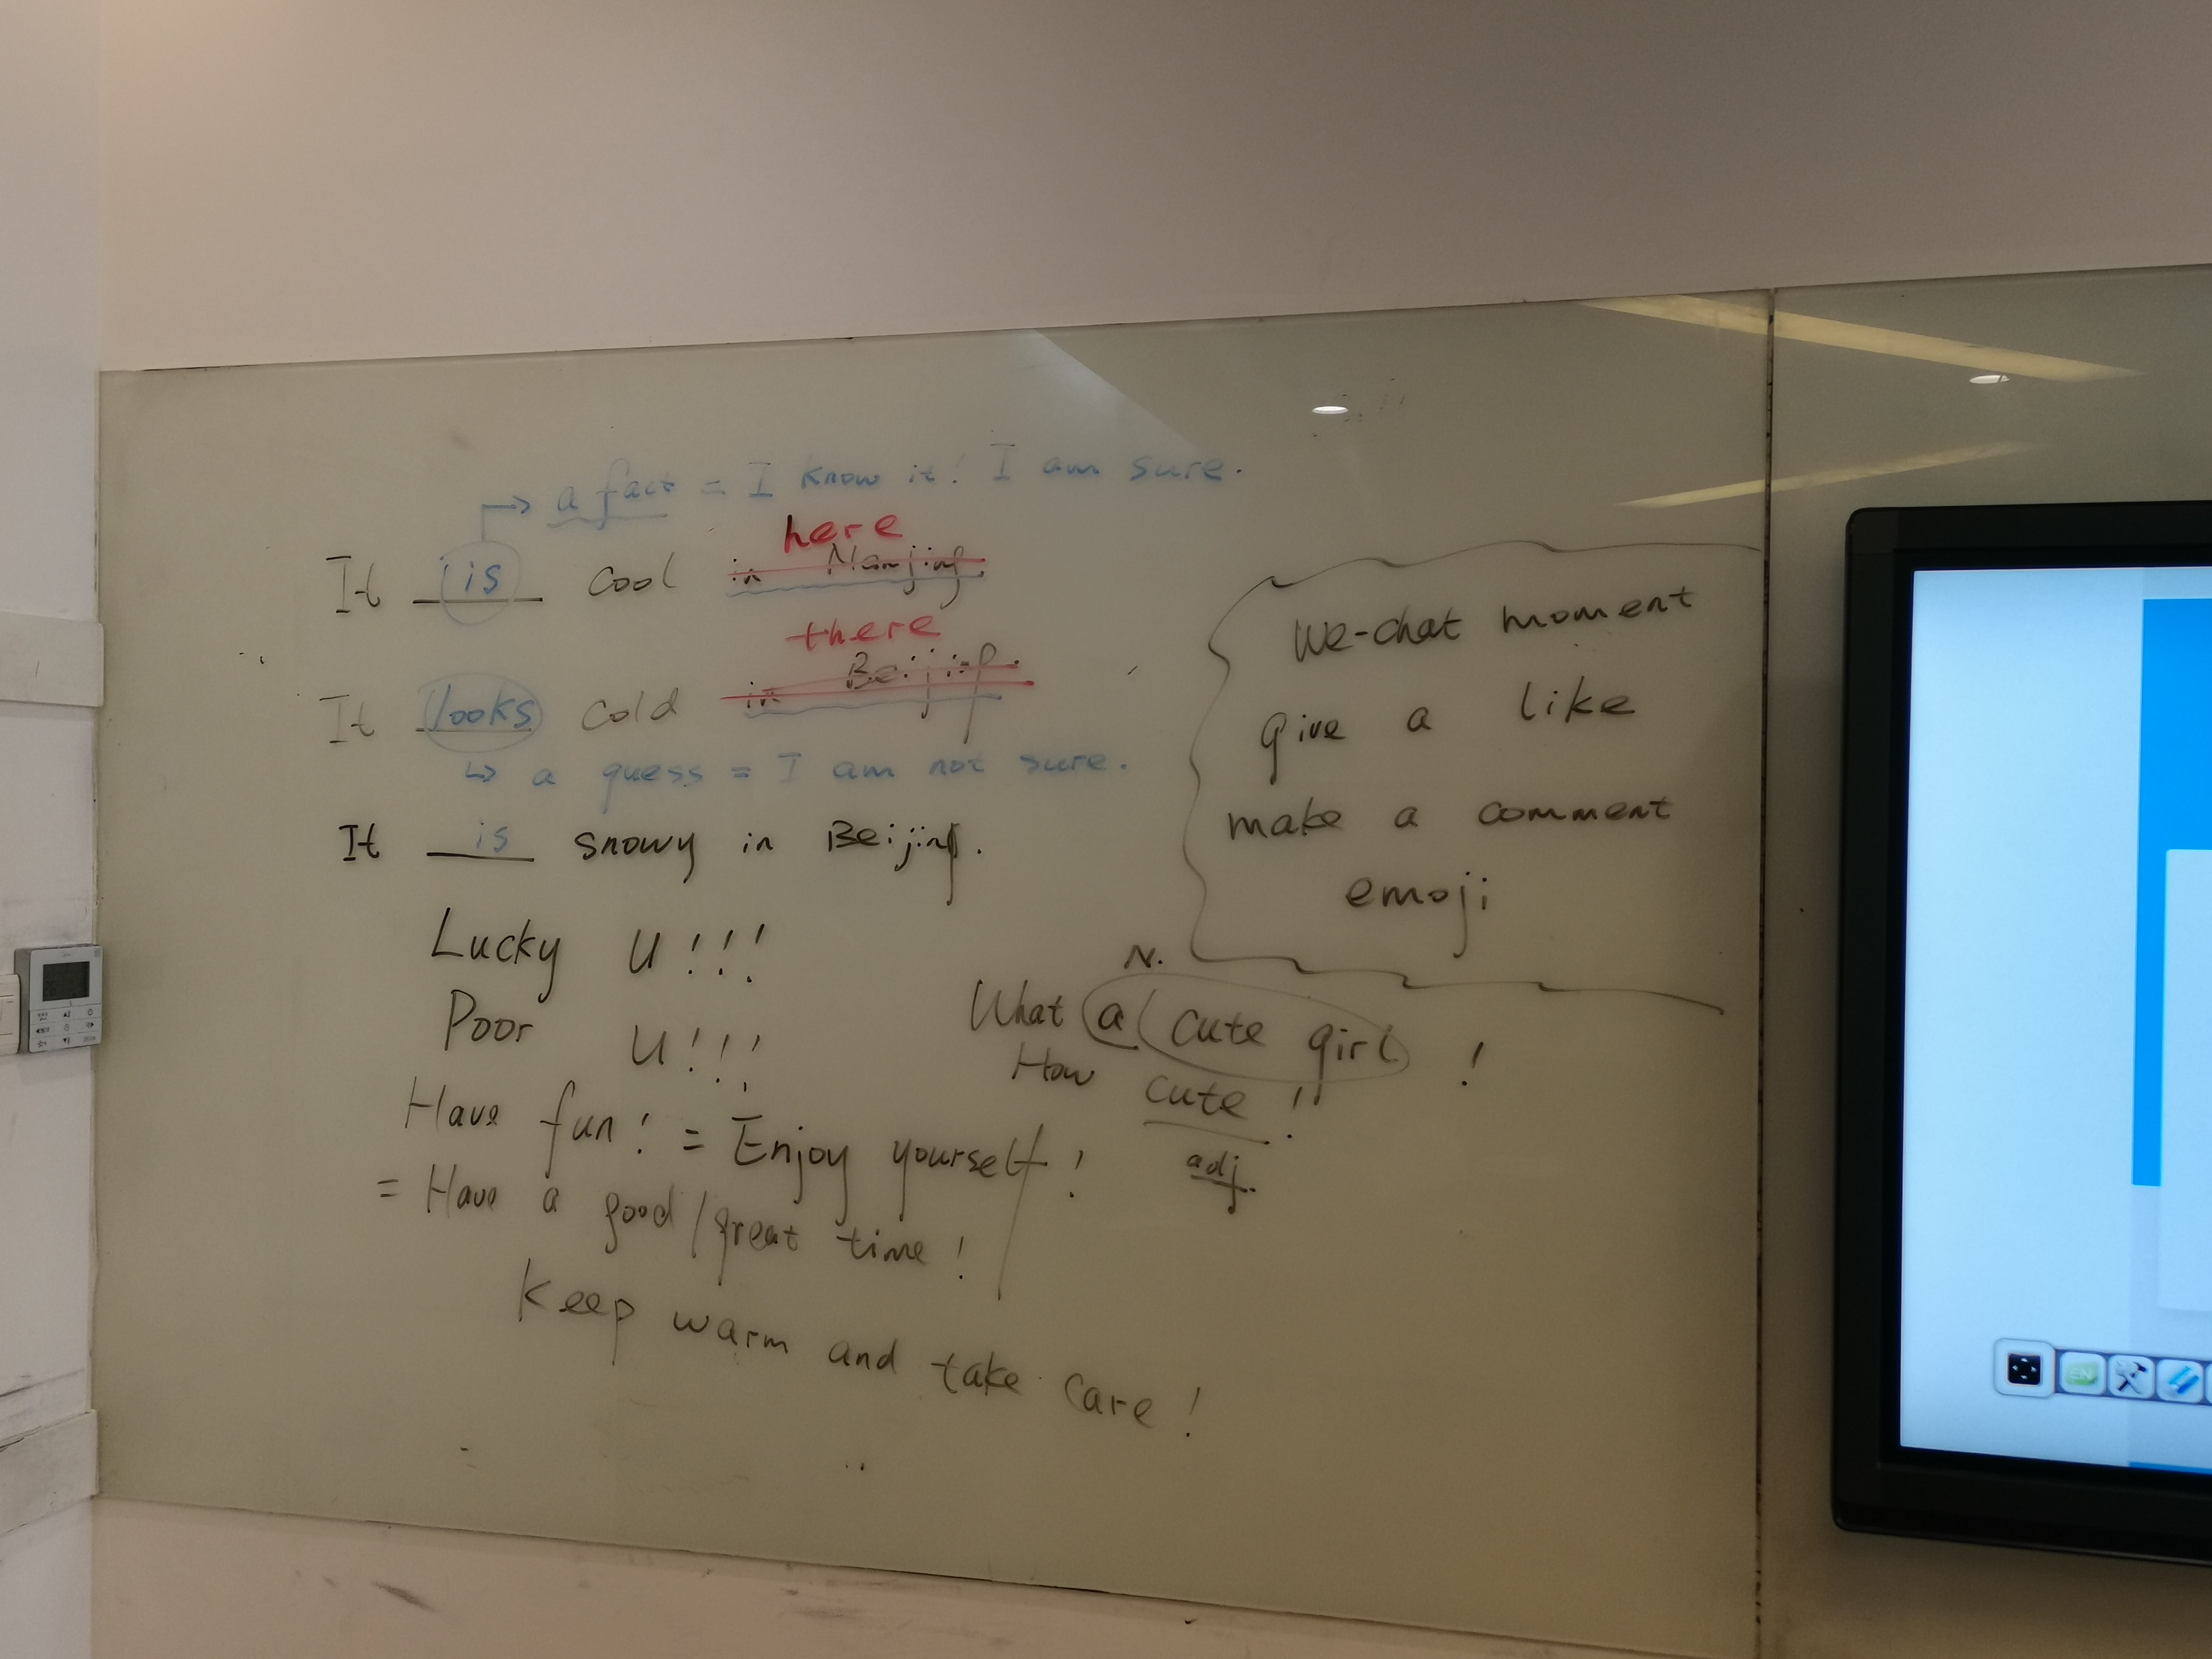 a fact = I know it! I am sure.
here
It is cool in Nanjing.
there
It looks cold in Beijing.
↳ a guess = I am not sure.
It is snowy in Beijing.
Lucky U!!!
Poor U!!!
Have fun! = Enjoy yourself!
= Have a good/great time!
Keep warm and take care!
We-chat moment
give a like
make a comment
emoji
N.
What a cute girl !
How cute !!
adj.
EN